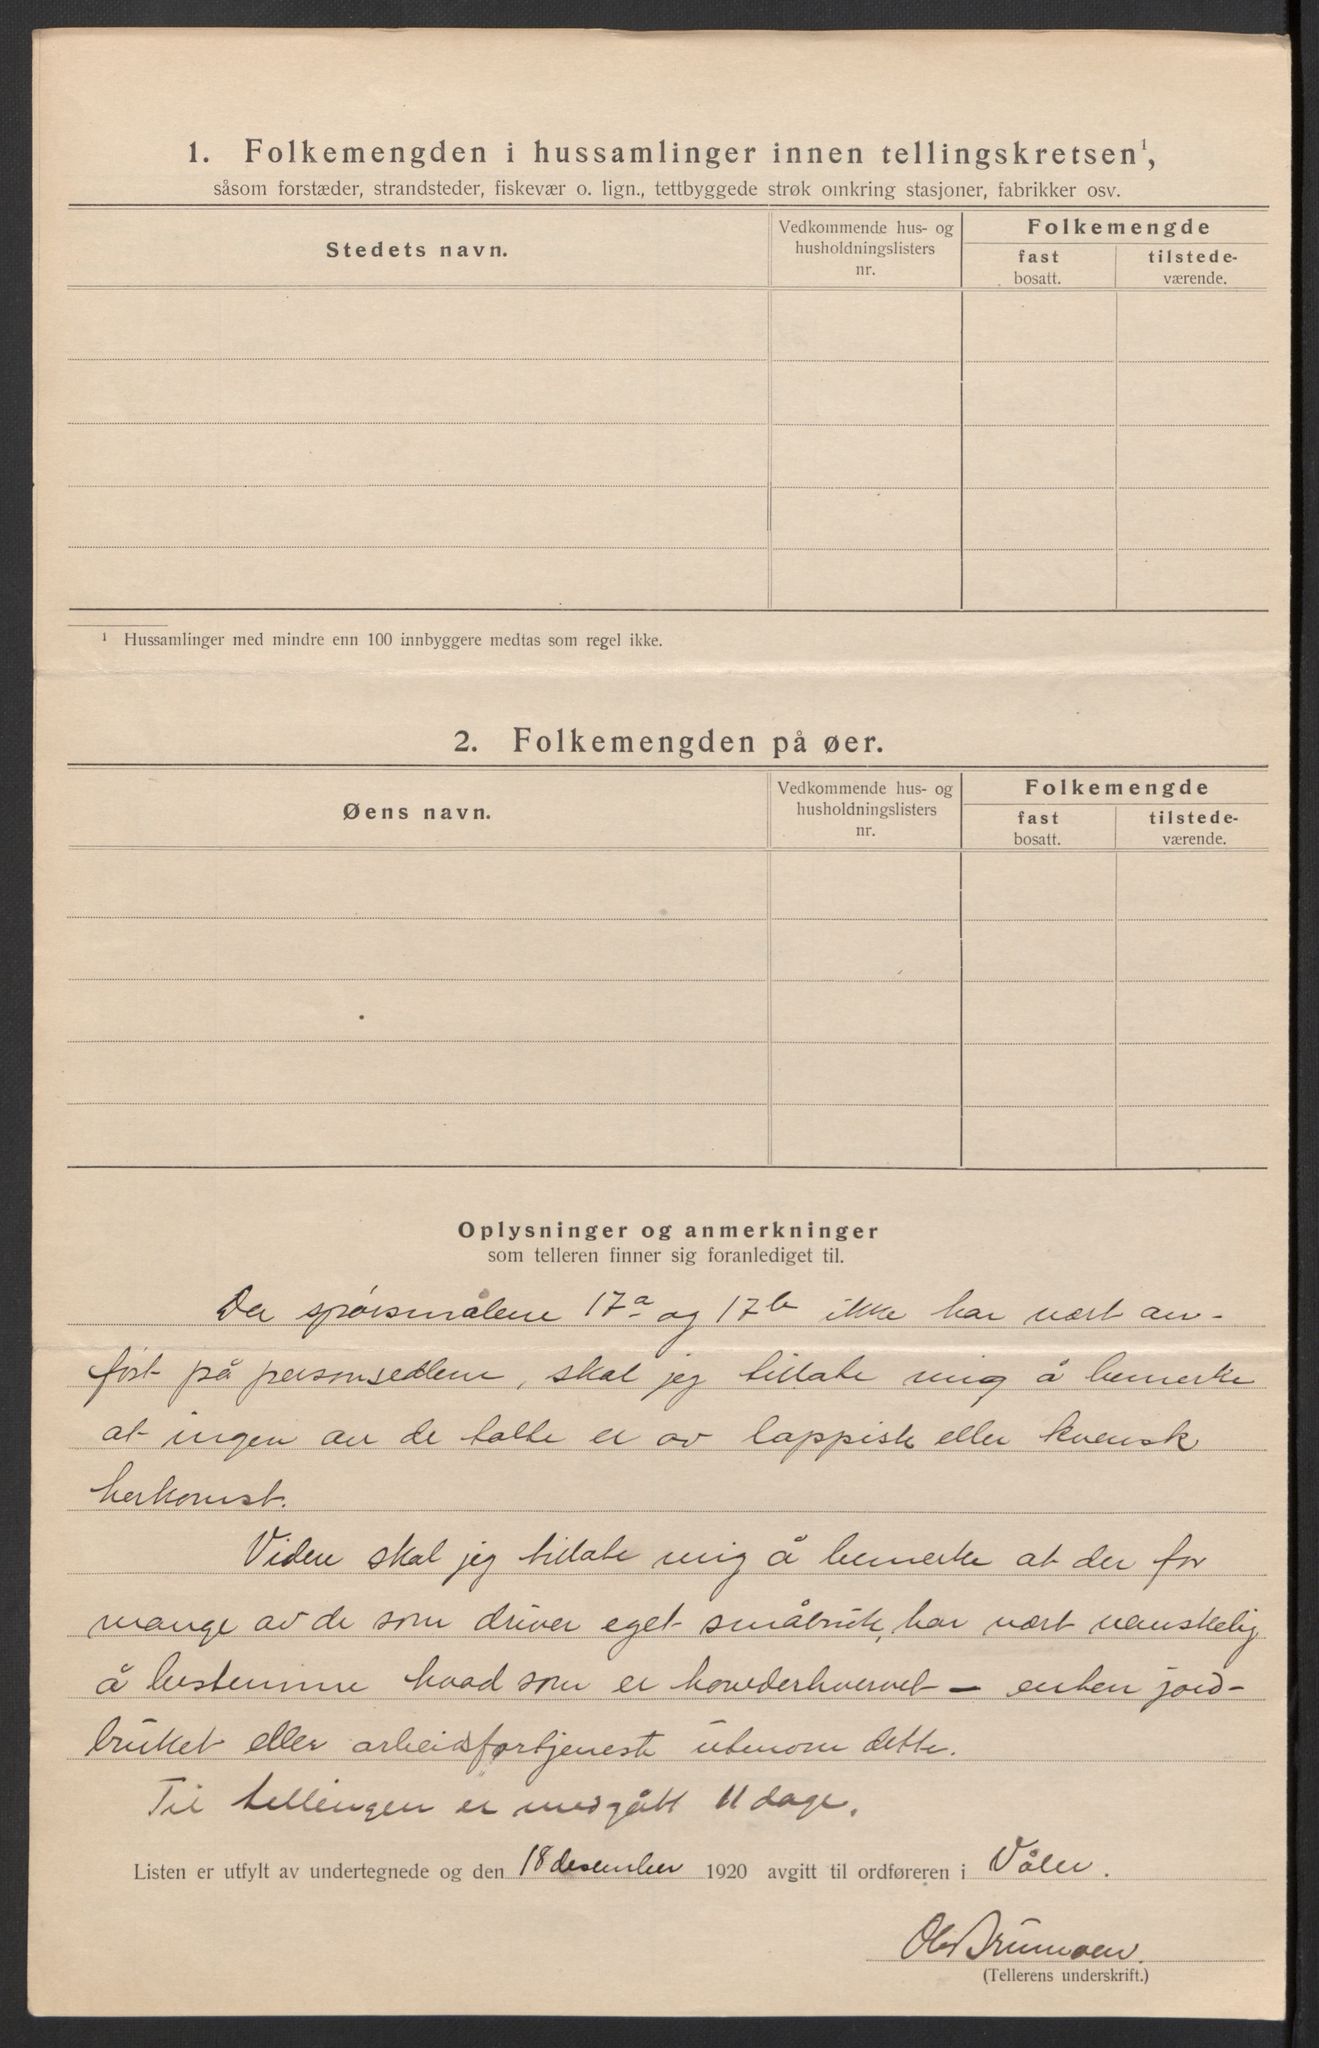 1. Folkemengden i hussamlinger innen tellingskretsen¹,
såsom forstæder, strandsteder, fiskevær o. lign., tettbyggede strøk omkring stasjoner, fabrikker osv.
Stedets navn.
Vedkommende hus- og
husholdningslisters
nr.
Folkemengde
fast
bosatt.
tilstede-
værende.
¹ Hussamlinger med mindre enn 100 innbyggere medtas som regel ikke.
2. Folkemengden på øer.
Øens navn.
Vedkommende hus- og
husholdningslisters
nr.
Folkemengde
fast
bosatt.
tilstede-
værende.
Oplysninger og anmerkninger
som telleren finner sig foranlediget til.
Da spørsmålene 17a og 17b ikke har vært an-
ført på personsedlene, skal jeg tillate mig å bemerke
at ingen av de talte er av lappisk eller kvensk
herkomst.
Videre skal jeg tillate mig å bemerke at der for
mange av de som driver eget småbruk, har vært vanskelig
å bestemme hvad som er hovederhvervet – enten jord-
bruket eller arbeidsfortjeneste utenom dette.
Til tellingen er medgått 11 dage.
Listen er utfylt av undertegnede og den 18 desember 1920 avgitt til ordføreren i Våler.
(Tellerens underskrift.)